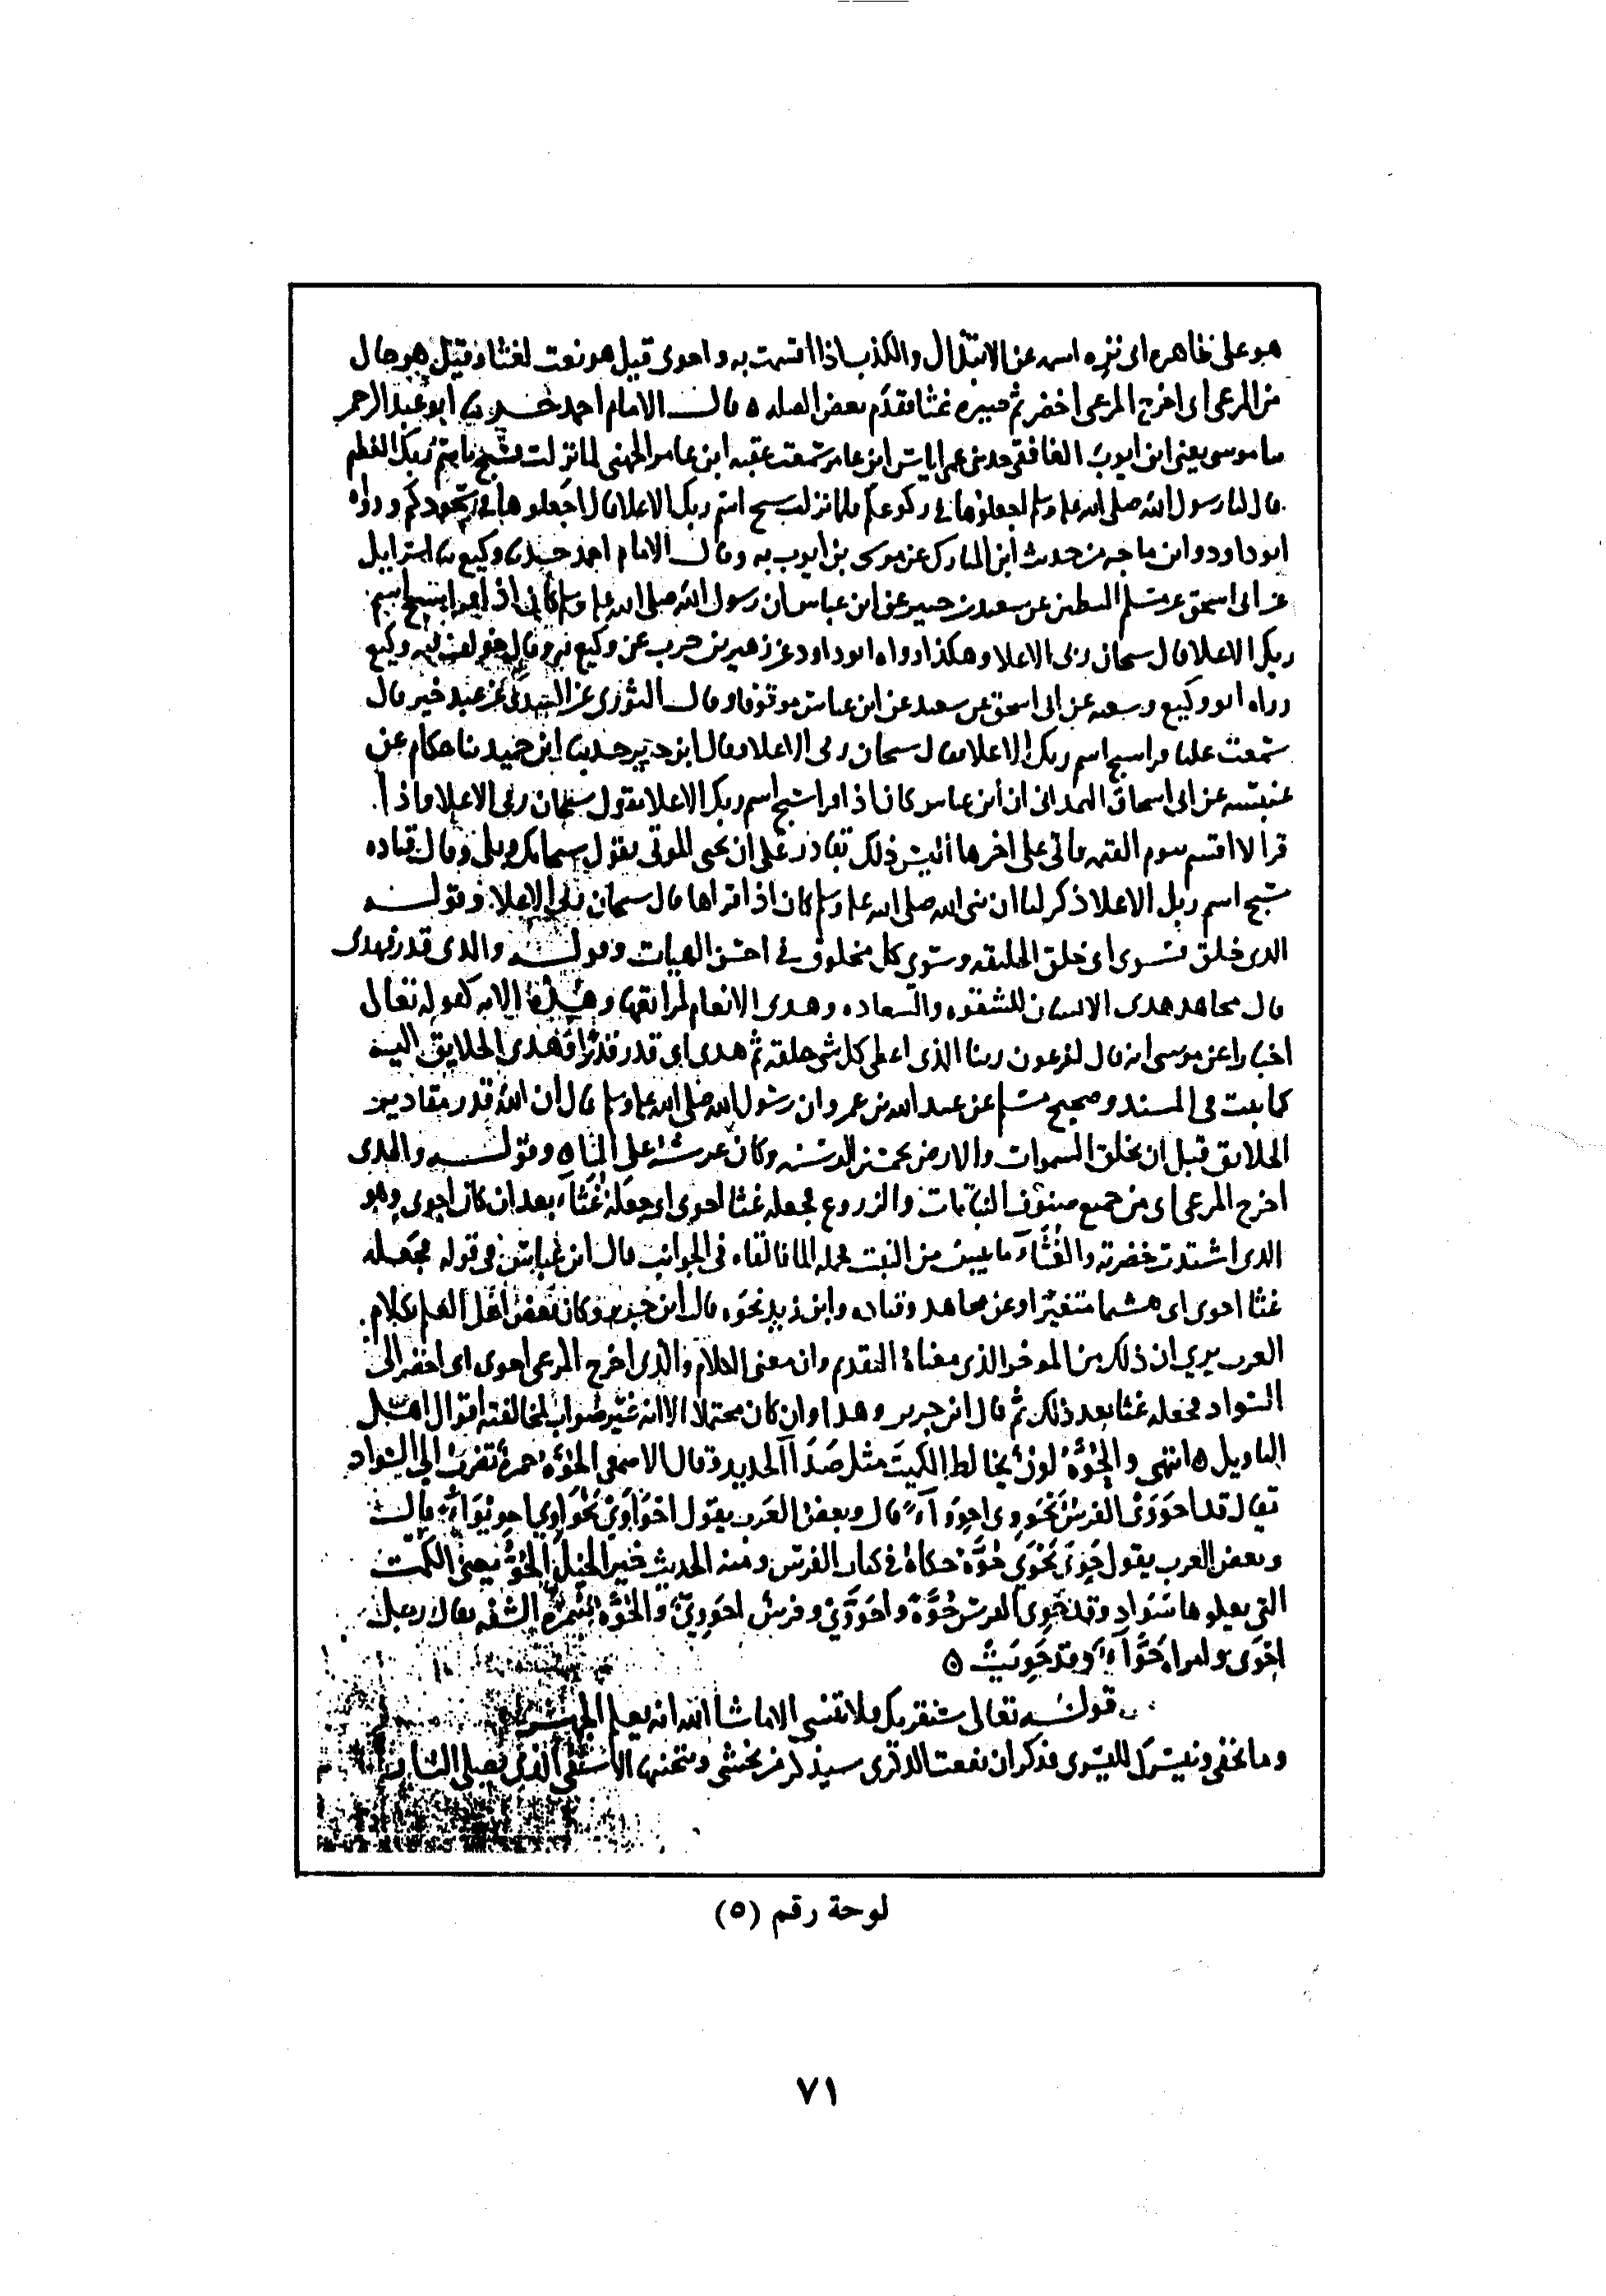 هو على ظاهره اى نزه اسمه عن الابتذال والكذب اذا اقسمت به واحوى قيل هو نعت لغثا وقيل هو حال
من المرعى اى اخرج المرعى اخضر ثم صيره غثا فقدم بعض الصله ٥ قال الامام احمد حدثنا ابو عبد الرحمن
سا موسى يعنى ابن ايوب الغافقى حدثنى عمى اياس ابن عامر سمعت عقبه ابن عامر الجهنى لما نزلت فسبح باسم ربك العظيم
قال لنا رسول الله صلى الله عليه وسلم اجعلوها فى ركوعكم فلما نزلت سبح اسم ربك الاعلا قال اجعلوها فى سجودكم ورواه
ابو داود وابن ماجه من حديث ابن المبارك عن موسى بن ايوب به وقال الامام احمد حدثنا وكيع سا اسرايل
عن ابى اسحق عن مسلم البطين عن سعيد بن جبير عن ابن عباس ان رسول الله صلى الله عليه وسلم كان اذا قرا سبح اسم
ربك الاعلا قال سبحان ربى الاعلا وهكذا رواه ابو داود عن زهير بن حرب عن وكيع به وقال خولف فيه وكيع
ورواه ابو وكيع وشعبه عن ابى اسحق عن سعيد عن ابن عباس موقوفا وقال الثورى عن السدى عن عبد خير قال
سمعت عليا قرا سبح اسم ربك الاعلا فقال سبحان ربى الاعلا وقال ابن جرير حدثنا ابن حميد سا حكام عن
عنبسه عن ابى اسحاق الهمدانى ان ابن عباس كان اذا قرا سبح اسم ربك الاعلا يقول سبحان ربى الاعلا واذا
قرا لا اقسم بيوم القيمه فاتى على اخرها اليس ذلك بقادر على ان يحى الموتى يقول سبحانك وبلى وقال قتاده
سبح اسم ربك الاعلا ذكر لنا ان نبى الله صلى الله عليه وسلم كان اذا قراها قال سبحان ربى الاعلا وقوله
الذى خلق فسوى اى خلق الخليقه وسوى كل مخلوق فى احسن الهيات وقوله والذى قدر فهدى
قال مجاهد هدى الانسان للشقوه والسعاده وهدى الانعام لمراتعها وهذه الايه كقوله تعالى
اخبارا عن موسى انه قال لفرعون ربنا الذى اعطى كل شى خلقه ثم هدى اى قدر قدرا وهدى الخلايق اليه
كما ثبت فى المسند وصحيح مسلم عن عبد الله بن عمرو ان رسول الله صلى الله عليه وسلم قال ان الله قدر مقادير
الخلايق قبل ان يخلق السموات والارض بخمسين الف سنه وكان عرشه على الما ٥ وقوله والذى
اخرج المرعى اى من جميع صنوف النباتات والزروع فجعله غثا احوى اى جعله غُثَآء بعد ان كان احوى وهو
الذى اشتدت خضرته والغُثَآء ما يبس من النبت فحمله الما فالقاه فى الجوانب قال ابن عباس فى قوله فجعله
غثا احوى اى هشيما متغيرا وعن مجاهد وقتاده وابن زيد نحوه قال ابن جرير وكان بعض اهل العلم بكلام
العرب يرى ان ذلك من الموخر الذى معناه التقدم وان معنى الكلام والذى اخرج المرعى احوى اى اخضر الى
السواد فجعله غثا بعد ذلك ثم قال ابن جرير وهذا وان كان محتملا الا انه غير صواب لمخالفته اقوال اهل
التاويل ٥ انتهى والحُوَّة لون يخالط الكُميت مثل صَدَا الحديد وقال الاصمعى الحُوَّه حمرة تضرب الى السواد
يقال قد احوَوَى الفرس يَحْوَوِى احوِوَآءً قال وبعض العرب يقول احْوَاوَى يَحْوَاوِى احوِيوَآءً قال
وبعض العرب يقول حَوِىَ يَحْوَى حُوَّة حكاه فى كتاب الفرس ومنه الحديث خير الخيل الحُوُّ يعنى الكمت
التى يعلوها سَواد وقد حَوِى الفرس حُوَّة واحوَوَى وفرس احوَوِىّ والحُوَّه سُمرة الشفه يقال رجل
احْوَى وامراه حَوَّآء وقد حَوِيَتْ ٥
قوله تعالى سنقريك فلا تنسى الا ما شا الله انه يعلم الجهر
وما يخفى ونيسرك لليسرى فذكر ان نفعت الذكرى سيذكر من يخشى ويتجنبها الاشقى الذى يصلى النار
لوحة رقم (٥)
٧١